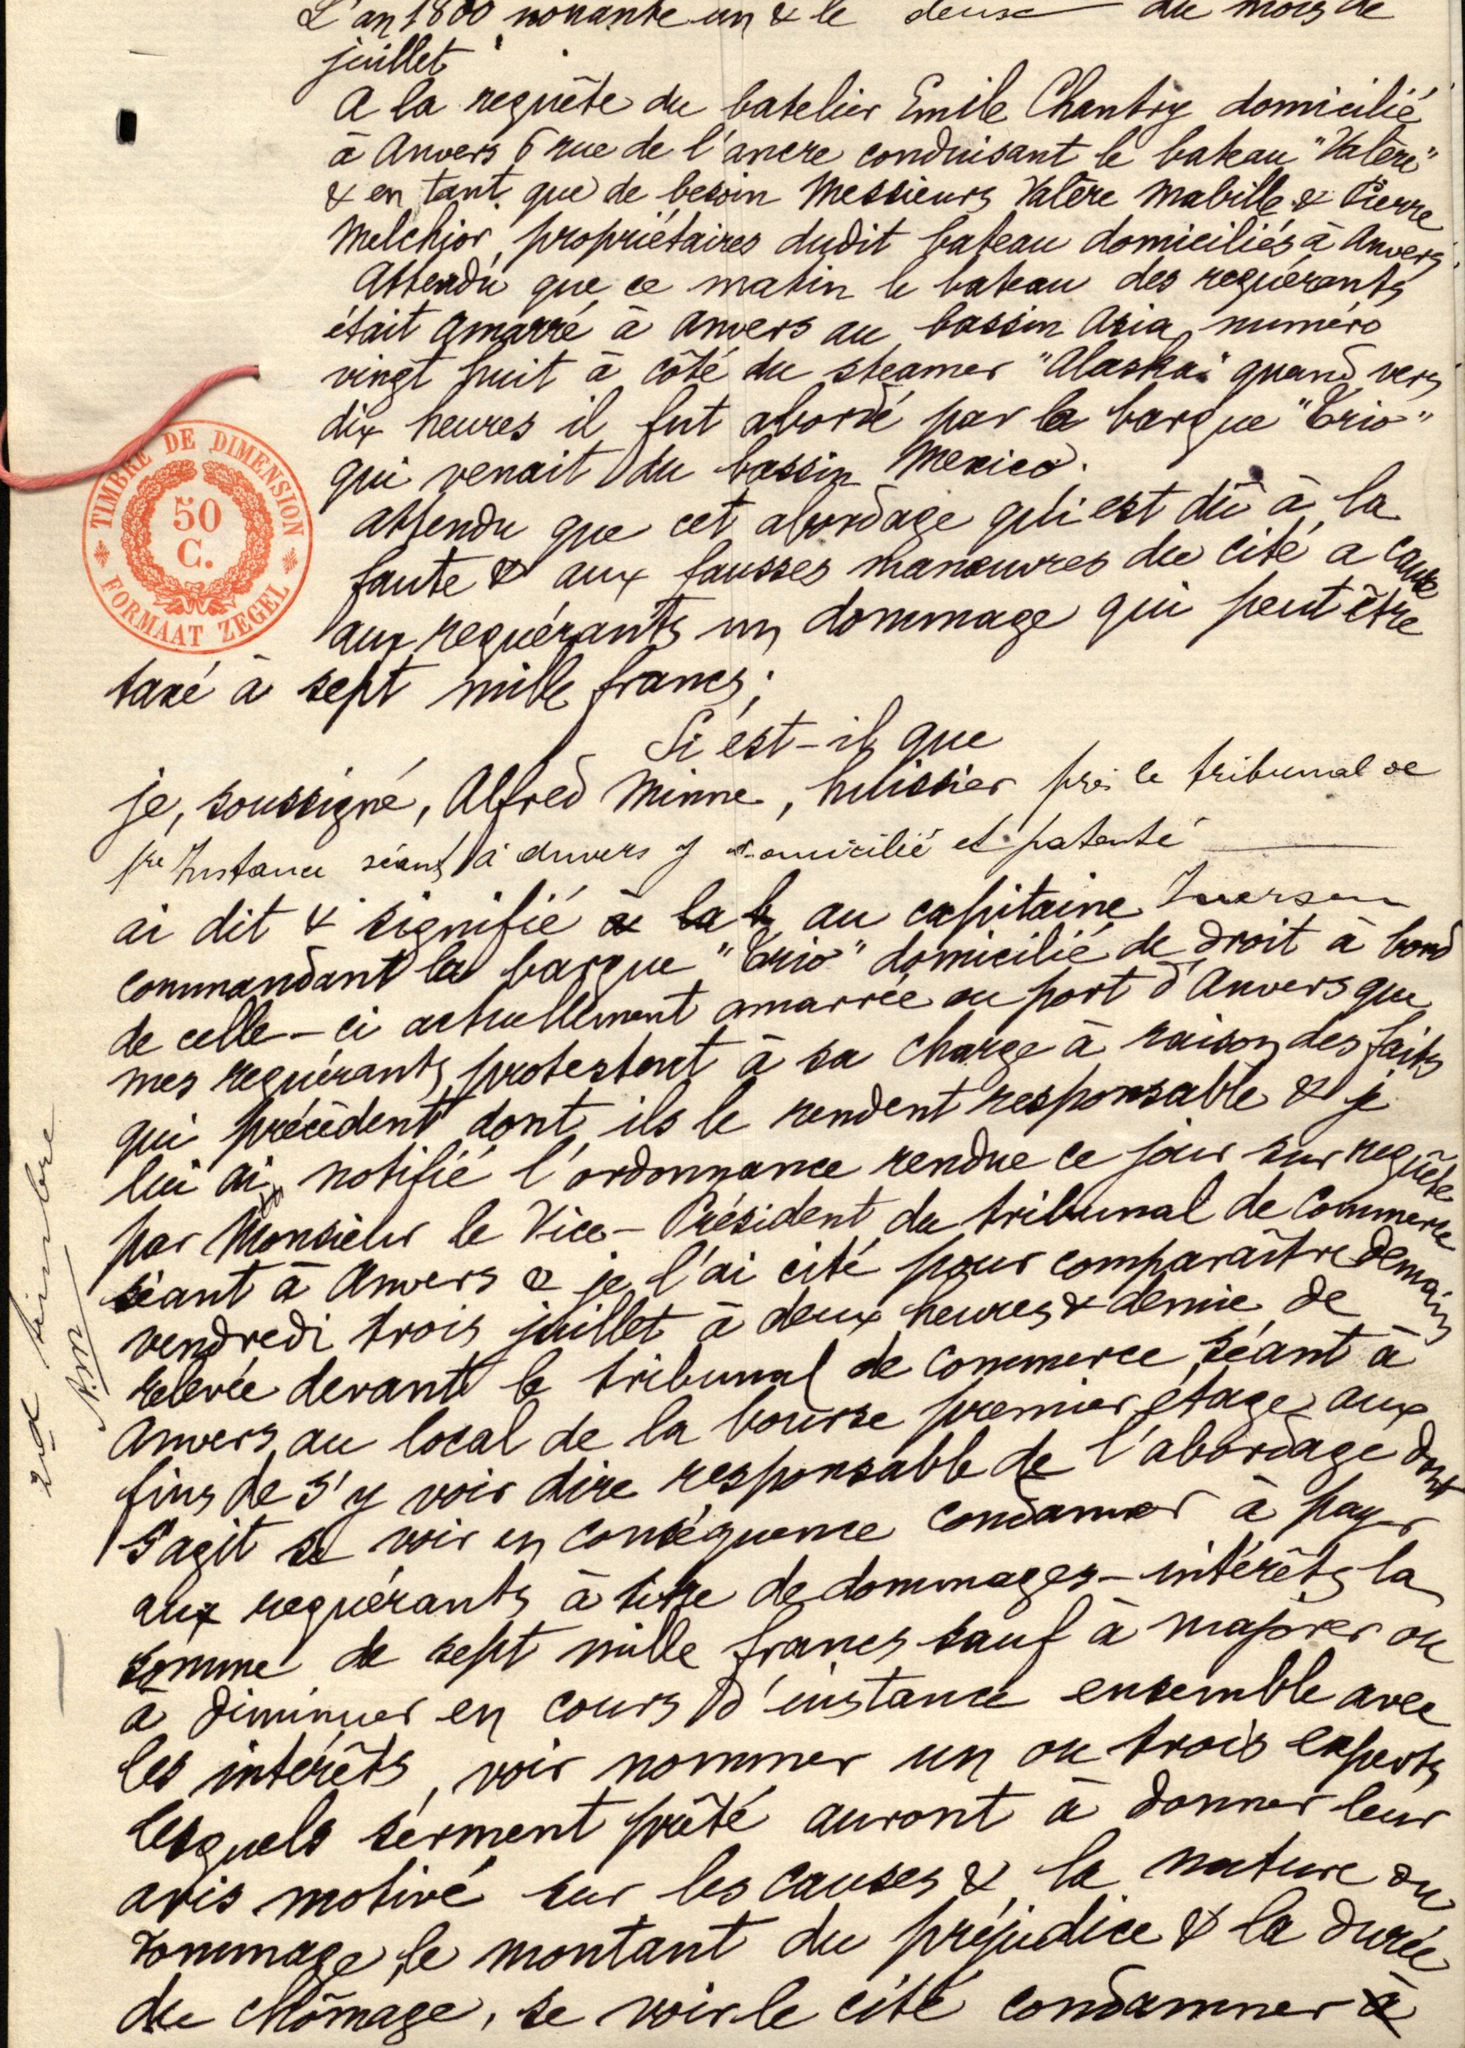 L'an 1800 nonante un & le deux du mois de
juillet
A la requête du batelier Emile Chantry domicilié
à Anvers 6 rue de l'ancre conduisant le bateau "Valère"
& en tant que de besoin Messieurs Valère Mabille & Pierre
Melchior, propriétaires dudit bateau domiciliés à Anvers.
Attendu que ce matin le bateau des requérants
était amarré à Anvers au bassin Asia numéro
vingt huit à côté du steamer "Alaska" quand vers
dix heures il fut abordé par la barque "Trio"
qui venait du bassin Mexico.
Attendu que cet abordage qui est dû à la
faute & aux fausses manœuvres du cité a causé
aux requérants un dommage qui peut être
taxé à sept mille francs;
Si est-il que
je, soussigné, Alfred Minne, huissier près le tribunal de
1re Instance séant à Anvers y domicilié et patenté
ai dit & signifié à la b au capitaine Iversen
commandant la barque "Trio" domicilié de droit à bord
de celle-ci actuellement amarrée au port d'Anvers que
mes requérants protestent à sa charge à raison des faits
qui précèdent dont ils le rendent responsable & je
lui ai notifié l'ordonnance rendue ce jour sur requête
par Monsieur le Vice-Président du tribunal de Commerce
séant à Anvers & je l'ai cité pour comparaître demain
vendredi trois juillet à deux heures & demie de
relevée devant le tribunal de commerce séant à
Anvers au local de la bourse premier étage aux
fins de s'y voir dire responsable de l'abordage dont
s'agit se voir en conséquence condamner à payer
aux requérants à titre de dommages-intérêts la
somme de sept mille francs sauf à majorer ou
à diminuer en cours d'instance ensemble avec
les intérêts, voir nommer un ou trois experts
lesquels serment prêté auront à donner leur
avis motivé sur les causes & la nature du
dommage, le montant du préjudice & la durée
du chômage, se voir le cité condamner à
TIMBRE DE DIMENSION
50
C.
FORMAAT ZEGEL
2nd timbre